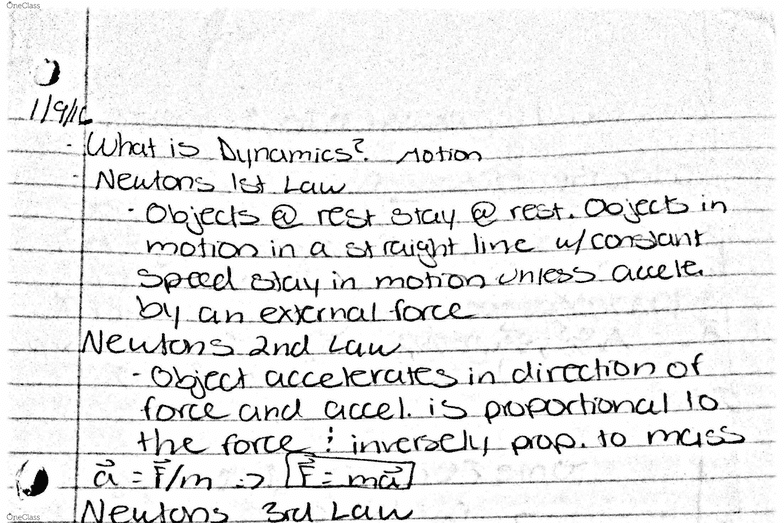 OneClass
1/9/16
- What is Dynamics? Motion
- Newtons 1st Law
- Objects @ rest stay @ rest. Objects in
motion in a straight line w/constant
speed stay in motion unless accele.
by an external force
Newtons 2nd Law
- Object accelerates in direction of
force and accel. is proportional to
the force & inversely prop. to mass
a⃗ = F⃗/m => F⃗ = ma⃗
Newtons 3rd Law
OneClass